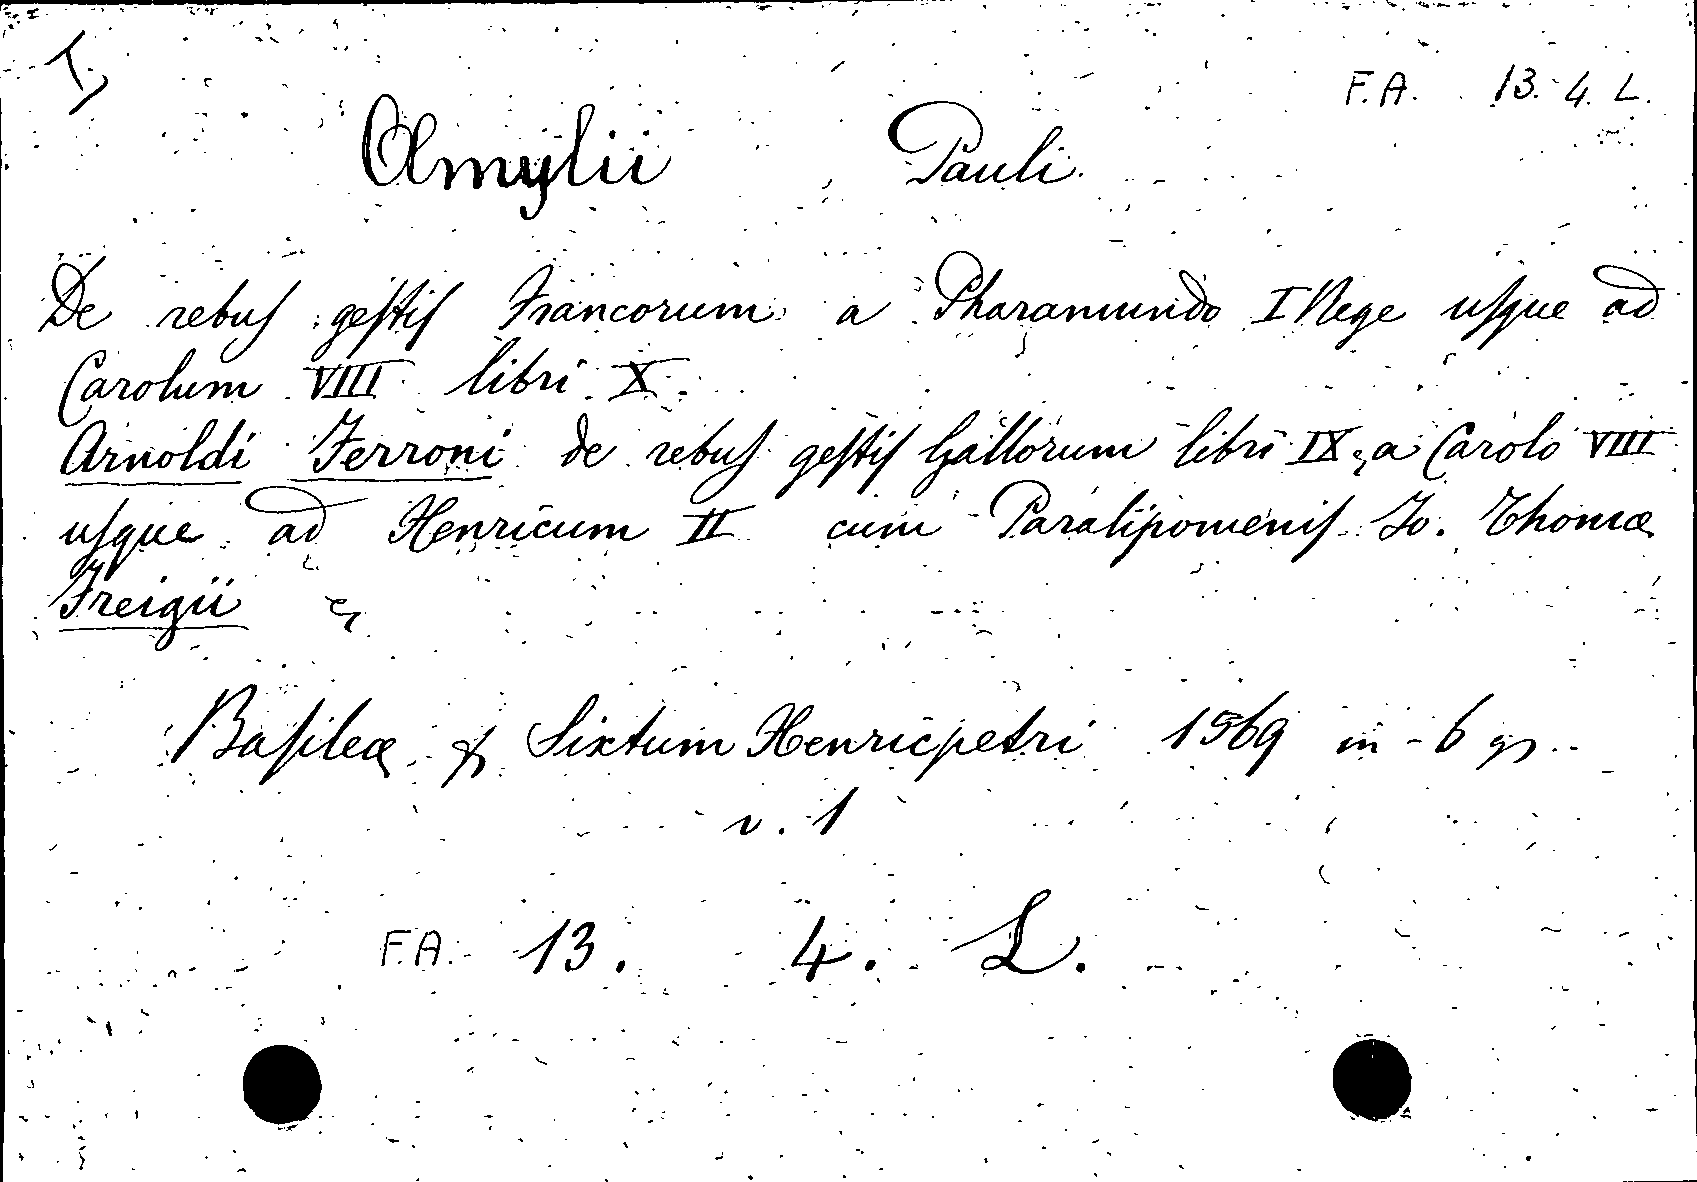 F.A. 13. 4. L.
Æmylii Pauli.
De rebus gestis Francorum a Pharamundo I Rege usque ad
Carolum VIII libri X.
Arnoldi Ferroni de rebus gestis Gallorum libri IX, a Carolo VIII
usque ad Henricum II cum Paralipomenis Jo. Thomæ
Freigii
Basileæ Sixtum Henricpetri 1569 in-6
v. 1
F.A. 13. 4. L.